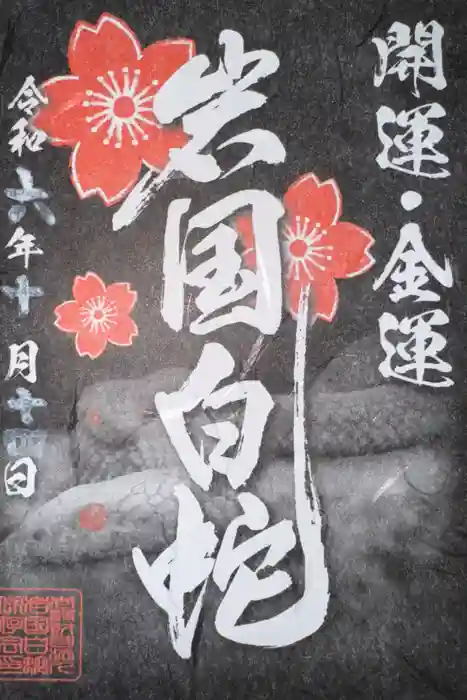 開運・金運
岩国白蛇
令和六年十月十四日